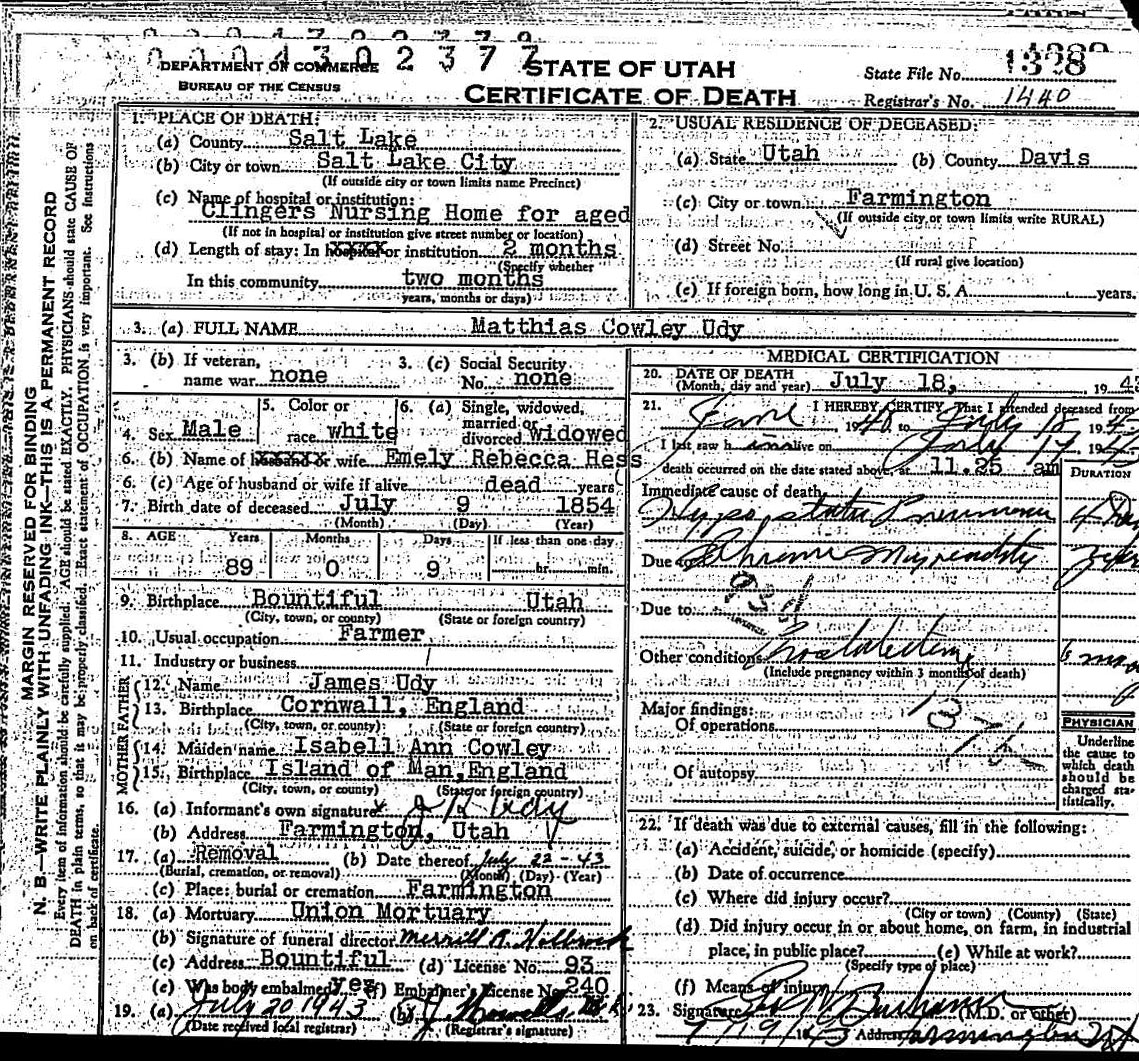 0004302377
DEPARTMENT OF COMMERCE
BUREAU OF THE CENSUS
STATE OF UTAH
CERTIFICATE OF DEATH
State File No. 1328
Registrar's No. 1440
MARGIN RESERVED FOR BINDING
N. B.—WRITE PLAINLY WITH UNFADING INK—THIS IS A PERMANENT RECORD
Every item of information should be carefully supplied. AGE should be stated EXACTLY. PHYSICIANS should state CAUSE OF
DEATH in plain terms, so that it may be properly classified. Exact statement of OCCUPATION is very important. See instructions
on back of certificate.
1. PLACE OF DEATH:
(a) County Salt Lake
(b) City or town Salt Lake City
(If outside city or town limits name Precinct)
(c) Name of hospital or institution:
Clingers Nursing Home for aged
(If not in hospital or institution give street number or location)
(d) Length of stay: In hospital or institution 2 months
(Specify whether
In this community two months
years, months or days)
2. USUAL RESIDENCE OF DECEASED:
(a) State Utah (b) County Davis
(c) City or town Farmington
(If outside city or town limits write RURAL)
(d) Street No.
(If rural give location)
(e) If foreign born, how long in U. S. A. years.
3. (a) FULL NAME Matthias Cowley Udy
3. (b) If veteran, name war none
3. (c) Social Security No. none
4. Sex Male
5. Color or race white
6. (a) Single, widowed, married or divorced widowed
6. (b) Name of husband or wife Emely Rebecca Hess
6. (c) Age of husband or wife if alive dead years
7. Birth date of deceased July 9 1854
(Month) (Day) (Year)
8. AGE Years Months Days If less than one day
89 0 9 hr. min.
9. Birthplace Bountiful Utah
(City, town, or county) (State or foreign country)
10. Usual occupation Farmer
11. Industry or business
FATHER
12. Name James Udy
13. Birthplace Cornwall, England
(City, town, or county) (State or foreign country)
MOTHER
14. Maiden name Isabell Ann Cowley
15. Birthplace Island of Man, England
(City, town, or county) (State or foreign country)
16. (a) Informant's own signature x J K Udy
(b) Address Farmington, Utah
17. (a) Removal (b) Date thereof July 22-43
(Burial, cremation, or removal) (Month) (Day) (Year)
(c) Place: burial or cremation Farmington
18. (a) Mortuary Union Mortuary
(b) Signature of funeral director Merrill R. Holbrook
(c) Address Bountiful (d) License No. 93
(e) Was body embalmed yes (f) Embalmer's License No. 240
19. (a) July 20, 1943 (b)
(Date received local registrar) (Registrar's signature)
MEDICAL CERTIFICATION
20. DATE OF DEATH
(Month, day and year) July 18, 194
21. I HEREBY CERTIFY, That I attended deceased from
1940 to July 18 194
I last saw h im alive on July 17 194
death occurred on the date stated above, at 11.25 am
DURATION
Immediate cause of death
Hypostatic Pneumonia 4
Due to Chronic
93d
Due to
Other conditions
(Include pregnancy within 3 months of death)
6 mo
Major findings:
Of operations
137
Of autopsy
PHYSICIAN
Underline
the cause to
which death
should be
charged sta-
tistically.
22. If death was due to external causes, fill in the following:
(a) Accident, suicide, or homicide (specify)
(b) Date of occurrence
(c) Where did injury occur?
(City or town) (County) (State)
(d) Did injury occur in or about home, on farm, in industrial
place, in public place? (e) While at work?
(Specify type of place)
(f) Means of injury
23. Signature (M.D. or other)
7/19/1943 Address Farmington